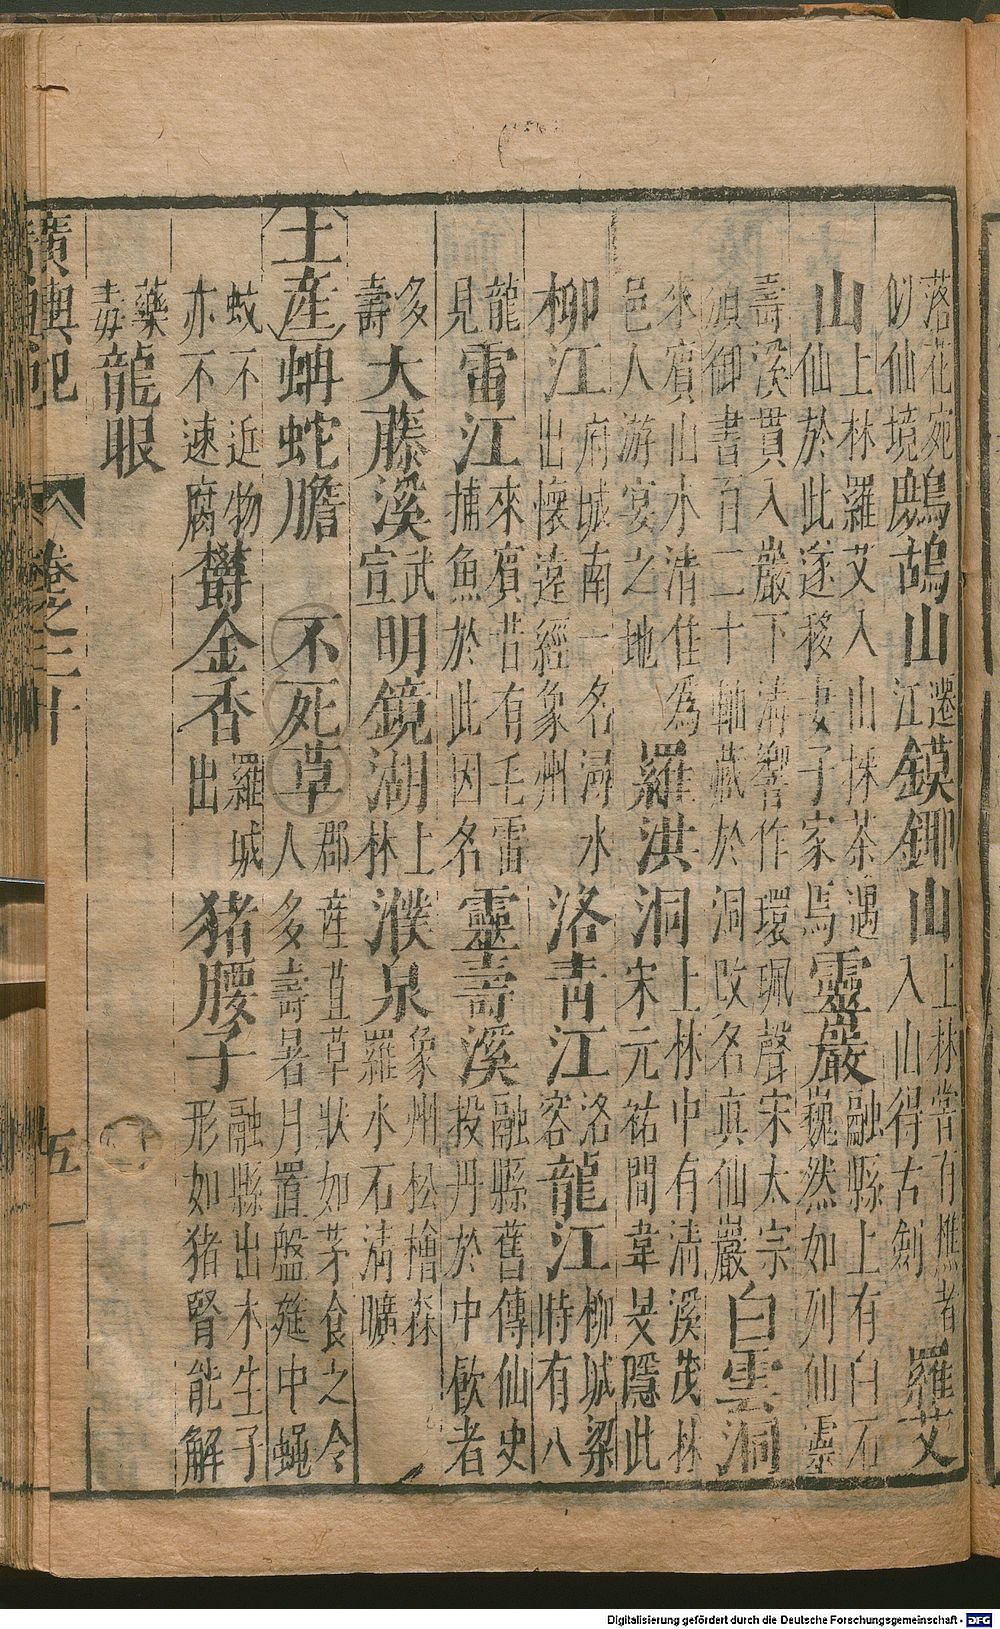 落花宛似仙境鷓鴣山遷江鏌鎁山上林嘗有樵者入山得古劍羅艾
山上林羅艾入山採茶遇仙於此遂移妻子家焉靈巖融縣上有白石巍然如列仙靈
壽溪貫入巖下清響作環珮聲宋太宗頒御書百二十軸藏於洞改名真仙巖白雲洞
來賓山水清佳為邑人游宴之地羅洪洞上林中有清溪茂林宋元祐間韋旻隱此
柳江府城南一名潯水出懷遠經象州洛青江洛容龍江柳城梁時有八
龍見雷江來賓昔有毛雷捕魚於此因名靈壽溪融縣舊傳仙史投丹於中飲者
多壽大藤溪武宣明鏡湖上林濮泉象州松檜森羅水石清曠
土產蚺蛇膽 不死草郡產苴草狀如茅食之令人多壽暑月置盤筵中蠅
蚊不近物亦不速腐欝金香羅城出猪腰子融縣出木生子形如猪腎能解
藥毒龍眼
廣輿記 卷之二十 五
Digitalisierung gefördert durch die Deutsche Forschungsgemeinschaft - DFG